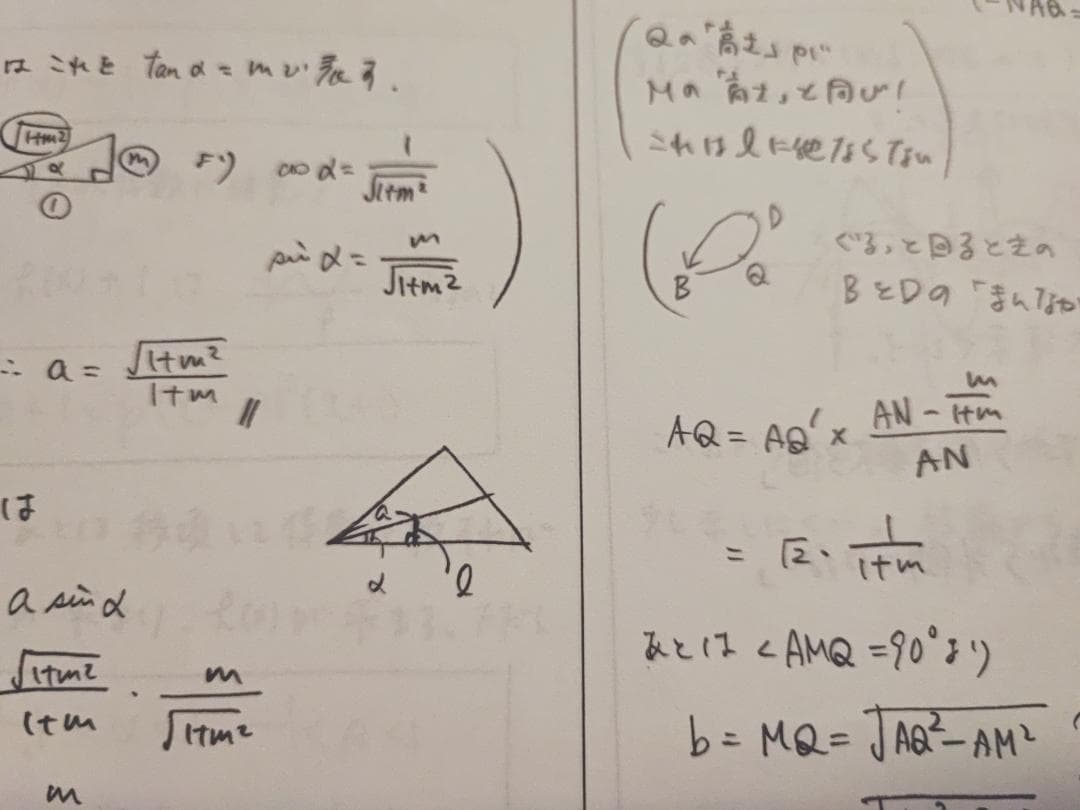 はこれを tanα = m で表す.
√1+m²
α
m
1
より cosα = 1/√1+m²
sinα = m/√1+m²
∴ a = √1+m²/1+m
は
a
α
l
a sinα
√1+m²/1+m · m/√1+m²
m
(-NAQ=
Qの「高さ」が
Mの「高さ」と同じ!
これはlに他ならない
D
B
Q
ぐるっと回るときの
BとDの「まんなか
AQ = AQ' × AN - m/1+m / AN
= √2 · 1/1+m
あとは <AMQ = 90°より
b = MQ = √AQ² - AM²